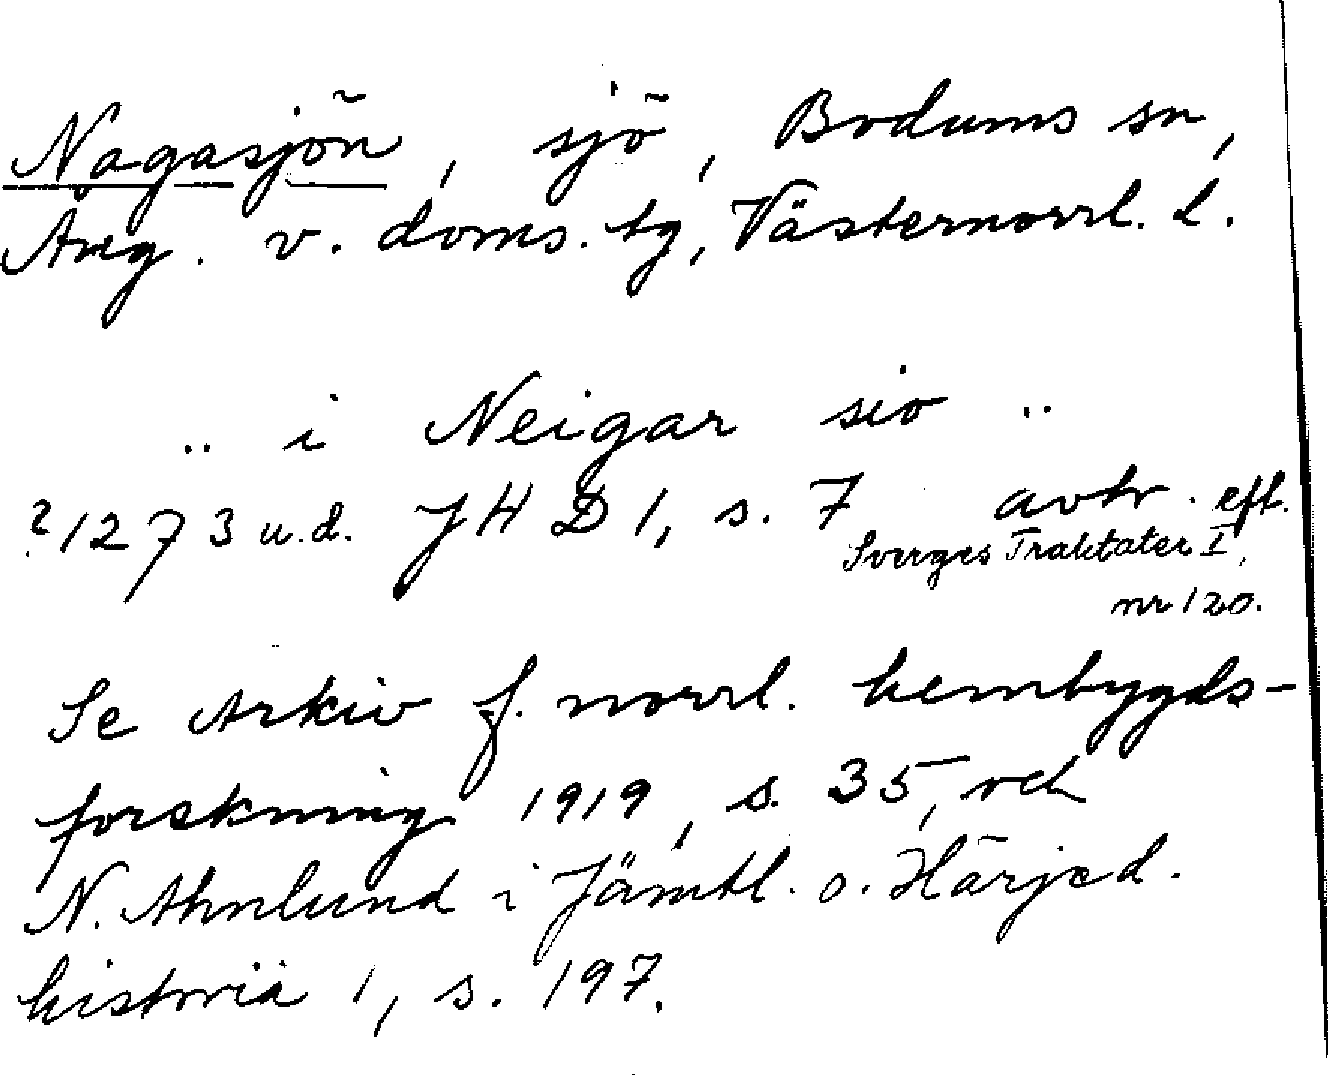 Nagasjön, sjö, Bodums sn,
Ång. v. doms. tg, Västernorrl. l.
.. i Neigar sio ..
? 1273 u.d. JHD 1, s. 7 avtr. eft.
Sverges Traktater I,
nr 120.
Se Arkiv f. norrl. hembygds-
forskning 1919, s. 35, och
N. Ahnlund i Jämtl. o. Härjed.
historia 1, s. 197.